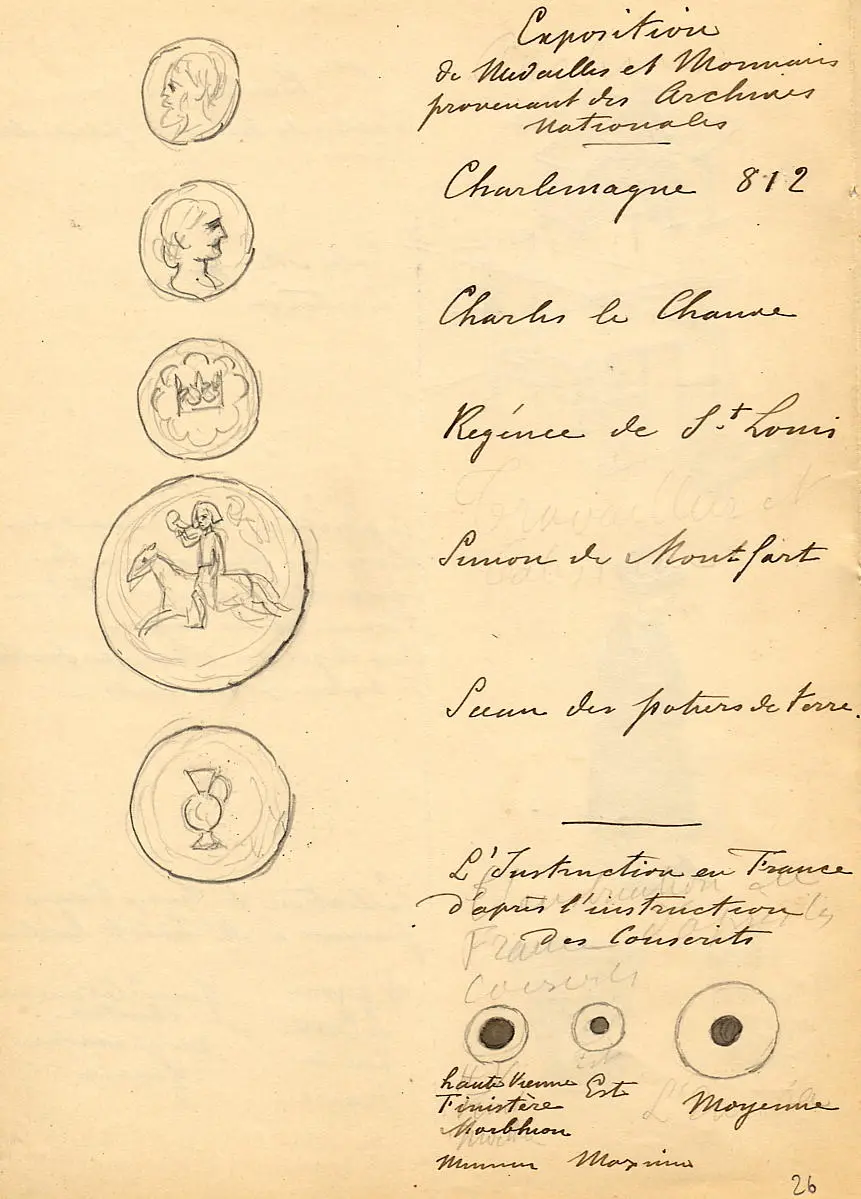 Exposition
de Médailles et Monnaies
provenant des Archives
Nationales
Charlemagne 812
Charles le Chauve
Regénce de St Louis
Simon de Montfort
Sceau des potiers de terre.
L'Instruction en France
d'après l'instruction
Des Conscrits
haute Vienne Est Moyenne
Finistère
Morbhion
Maxima
26